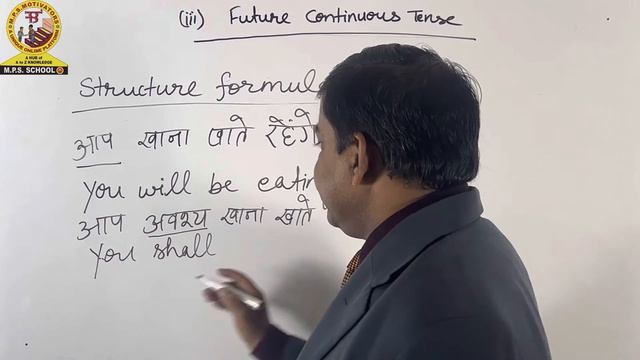 M.P.S. MOTIVATORS
UNIQUE ONLINE PLATFORM
A HUB of
A to Z KNOWLEDGE
M.P.S. SCHOOL
(iii) Future Continuous Tense
Structure formula
आप खाना खाते रहेंगे
You will be
आप अवश्य खाना खाते
You shall